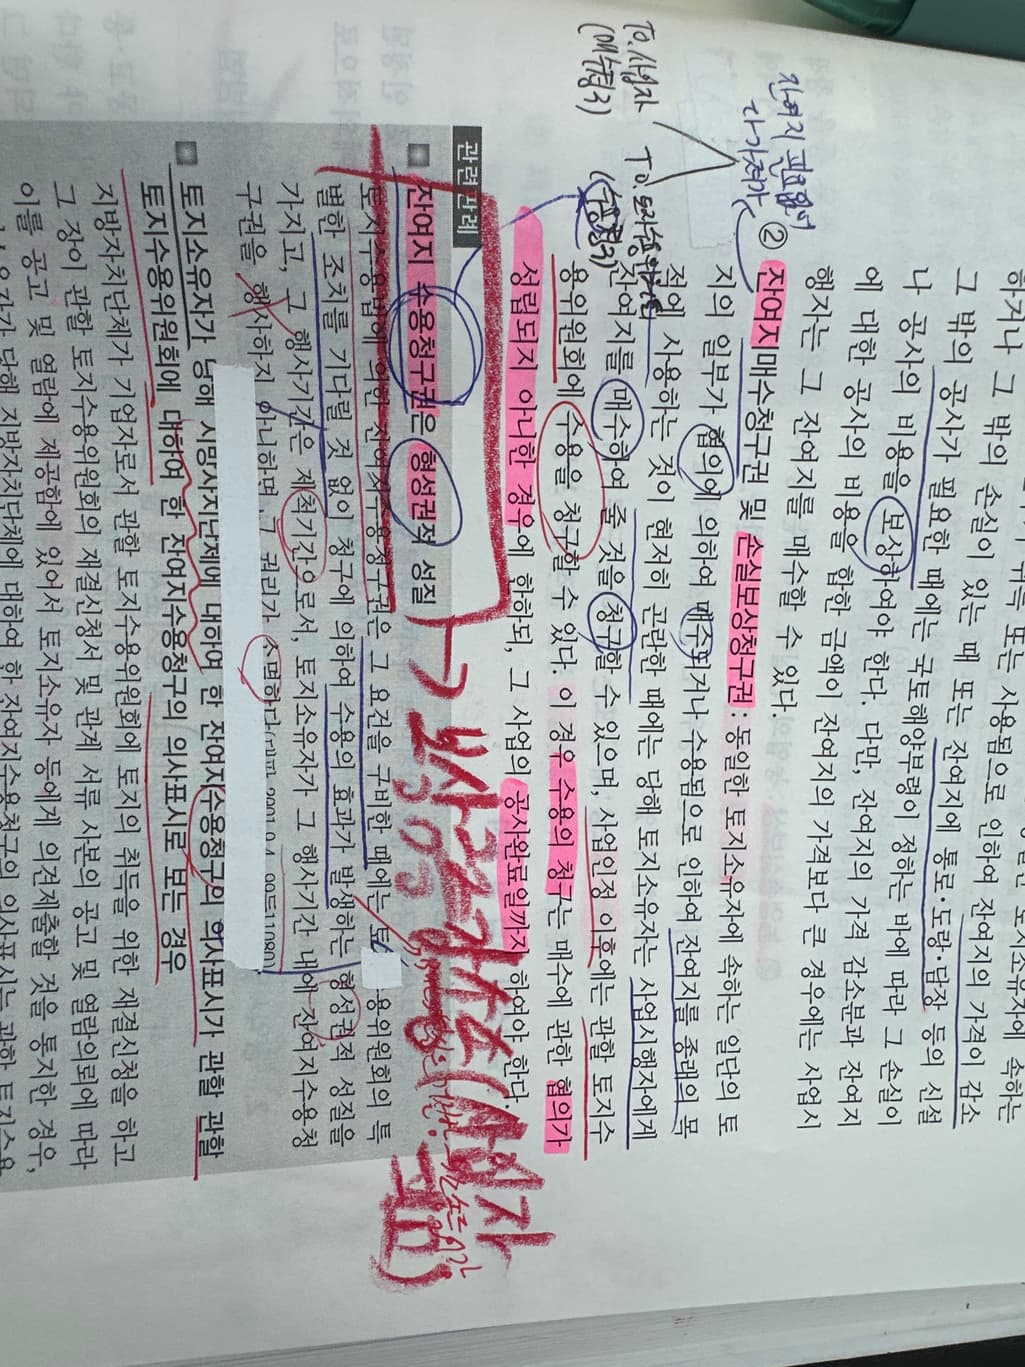 하거나 그 밖의 손실이 있는 때 또는 잔여지에 통로·도랑·담장 등의 신설
그 밖의 공사가 필요한 때에는 국토해양부령이 정하는 바에 따라 그 손실이
나 공사의 비용을 보상하여야 한다. 다만, 잔여지의 가격 감소분과 잔여지
에 대한 공사의 비용을 합한 금액이 잔여지의 가격보다 큰 경우에는 사업시
행자는 그 잔여지를 매수할 수 있다.
잔여지 필요없어
다 가져가
② 잔여지매수청구권 및 손실보상청구권 : 동일한 토지소유자에 속하는 일단의 토
지의 일부가 협의에 의하여 매수되거나 수용됨으로 인하여 잔여지를 종래의 목
적에 사용하는 것이 현저히 곤란한 때에는 당해 토지소유자는 사업시행자에게
To. 사업자
(매수청구)
To.
잔여지를 매수하여 줄 것을 청구할 수 있으며, 사업인정 이후에는 관할 토지수
용위원회에 수용을 청구할 수 있다. 이 경우 수용의 청구는 매수에 관한 협의가
성립되지 아니한 경우에 한하되, 그 사업의 공사완료일까지 하여야 한다.
관련판례
잔여지 수용청구권은 형성권적 성질
보상금증감소송(사업자
피고)
토지수용법에 의한 잔여지수용청구권은 그 요건을 구비한 때에는 토 용위원회의 특
별한 조치를 기다릴 것 없이 청구에 의하여 수용의 효과가 발생하는 형성권적 성질을
가지고, 그 행사기간은 제척기간으로서, 토지소유자가 그 행사기간 내에 잔여지수용청
구권을 행사하지 아니하면 그 권리가 소멸한다
토지소유자가 당해 지방자치단체에 대하여 한 잔여지수용청구의 의사표시가 관할 관할
토지수용위원회에 대하여 한 잔여지수용청구의 의사표시로 보는 경우
지방자치단체가 기업자로서 관할 토지수용위원회에 토지의 취득을 위한 재결신청을 하고
그 장이 관할 토지수용위원회의 재결신청서 및 관계 서류 사본의 공고 및 열람의뢰에 따라
이를 공고 및 열람에 제공함에 있어서 토지소유자 등에게 의견제출할 것을 통지한 경우,